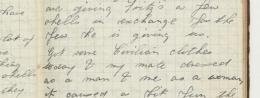 are giving Fritz's a few
shells in exchange for the
few he is giving us.
Got some Civilian clothes
today & my mate dressed
as a man & me as a woman
it caused a bit fun the